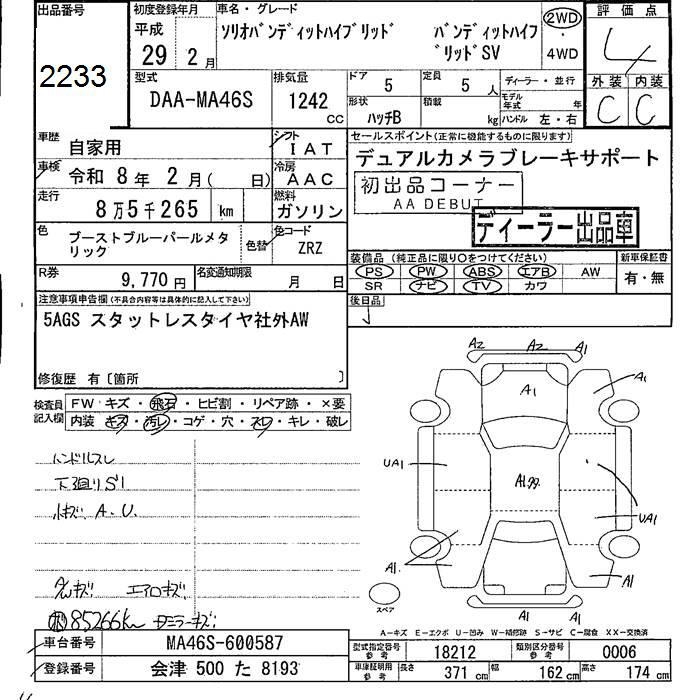 出品番号
2233
初度登録年月
平成
29 2月
車名・グレード
ソリオバンディットハイブリッド バンディットハイブ
リッドSV
2WD
・
4WD
評価点
4
型式
DAA-MA46S
排気量
1242
CC
ドア
5
定員
5人
形状
ハッチB
積載
kg
ディーラー・並行
モデル
年式
年
ハンドル 左・右
外装 内装
C C
車歴
自家用
シフト
IAT
車検
令和 8年 2月( 日)
冷房
AAC
走行
8万5千265 km
燃料
ガソリン
色
ブーストブルーパールメタ
リック
色替
色コード
ZRZ
R券
9,770円
名変通知期限
月 日
セールスポイント(正常に機能するものに限ります)
デュアルカメラブレーキサポート
初出品コーナー
AA DEBUT
ディーラー出品車
装備品(純正品に限り○をつけてください)
PS PW ABS エアB AW
SR ナビ TV カワ
新車保証書
有・無
後日品
注意事項申告欄(不具合内容等は具体的に記入して下さい)
5AGS スタットレスタイヤ社外AW
修復歴 有〔箇所 〕
検査員
記入欄
FW キズ・飛石・ヒビ割・リペア跡・×要
内装 キズ・汚レ・コゲ・穴・スレ・キレ・破レ
ハンドルスレ
下廻りS1
小キズ A.U.
エアロキズ
85266km
A2 A2 A1
A1
A1
UA1
UA1
A1
A1
スペア
A-キズ E-エクボ U-凹み W-補修跡 S-サビ C-腐食 XX-交換済
車台番号
MA46S-600587
登録番号
会津 500 た 8193
型式指定番号
参考
18212
類別区分番号
参考
0006
車庫証明用
参考
長さ
371 cm
幅
162 cm
高さ
174 cm